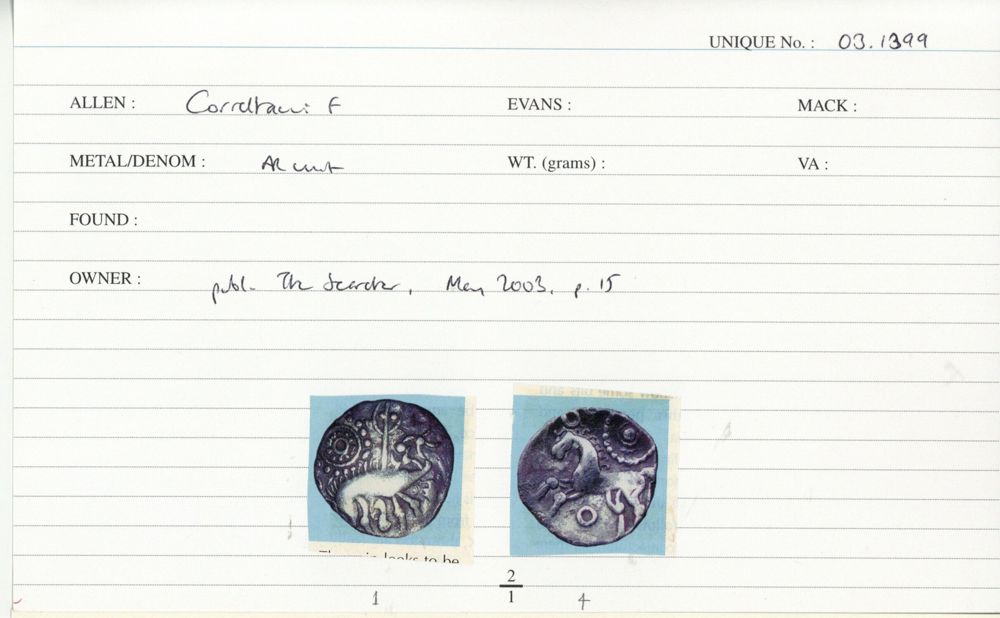 UNIQUE No. : 03.1399
ALLEN : Corieltauvi F EVANS : MACK :
METAL/DENOM : AR unit WT. (grams) : VA :
FOUND :
OWNER : publ. The Searcher, May 2003, p. 15
looks to be
2
1 1 4